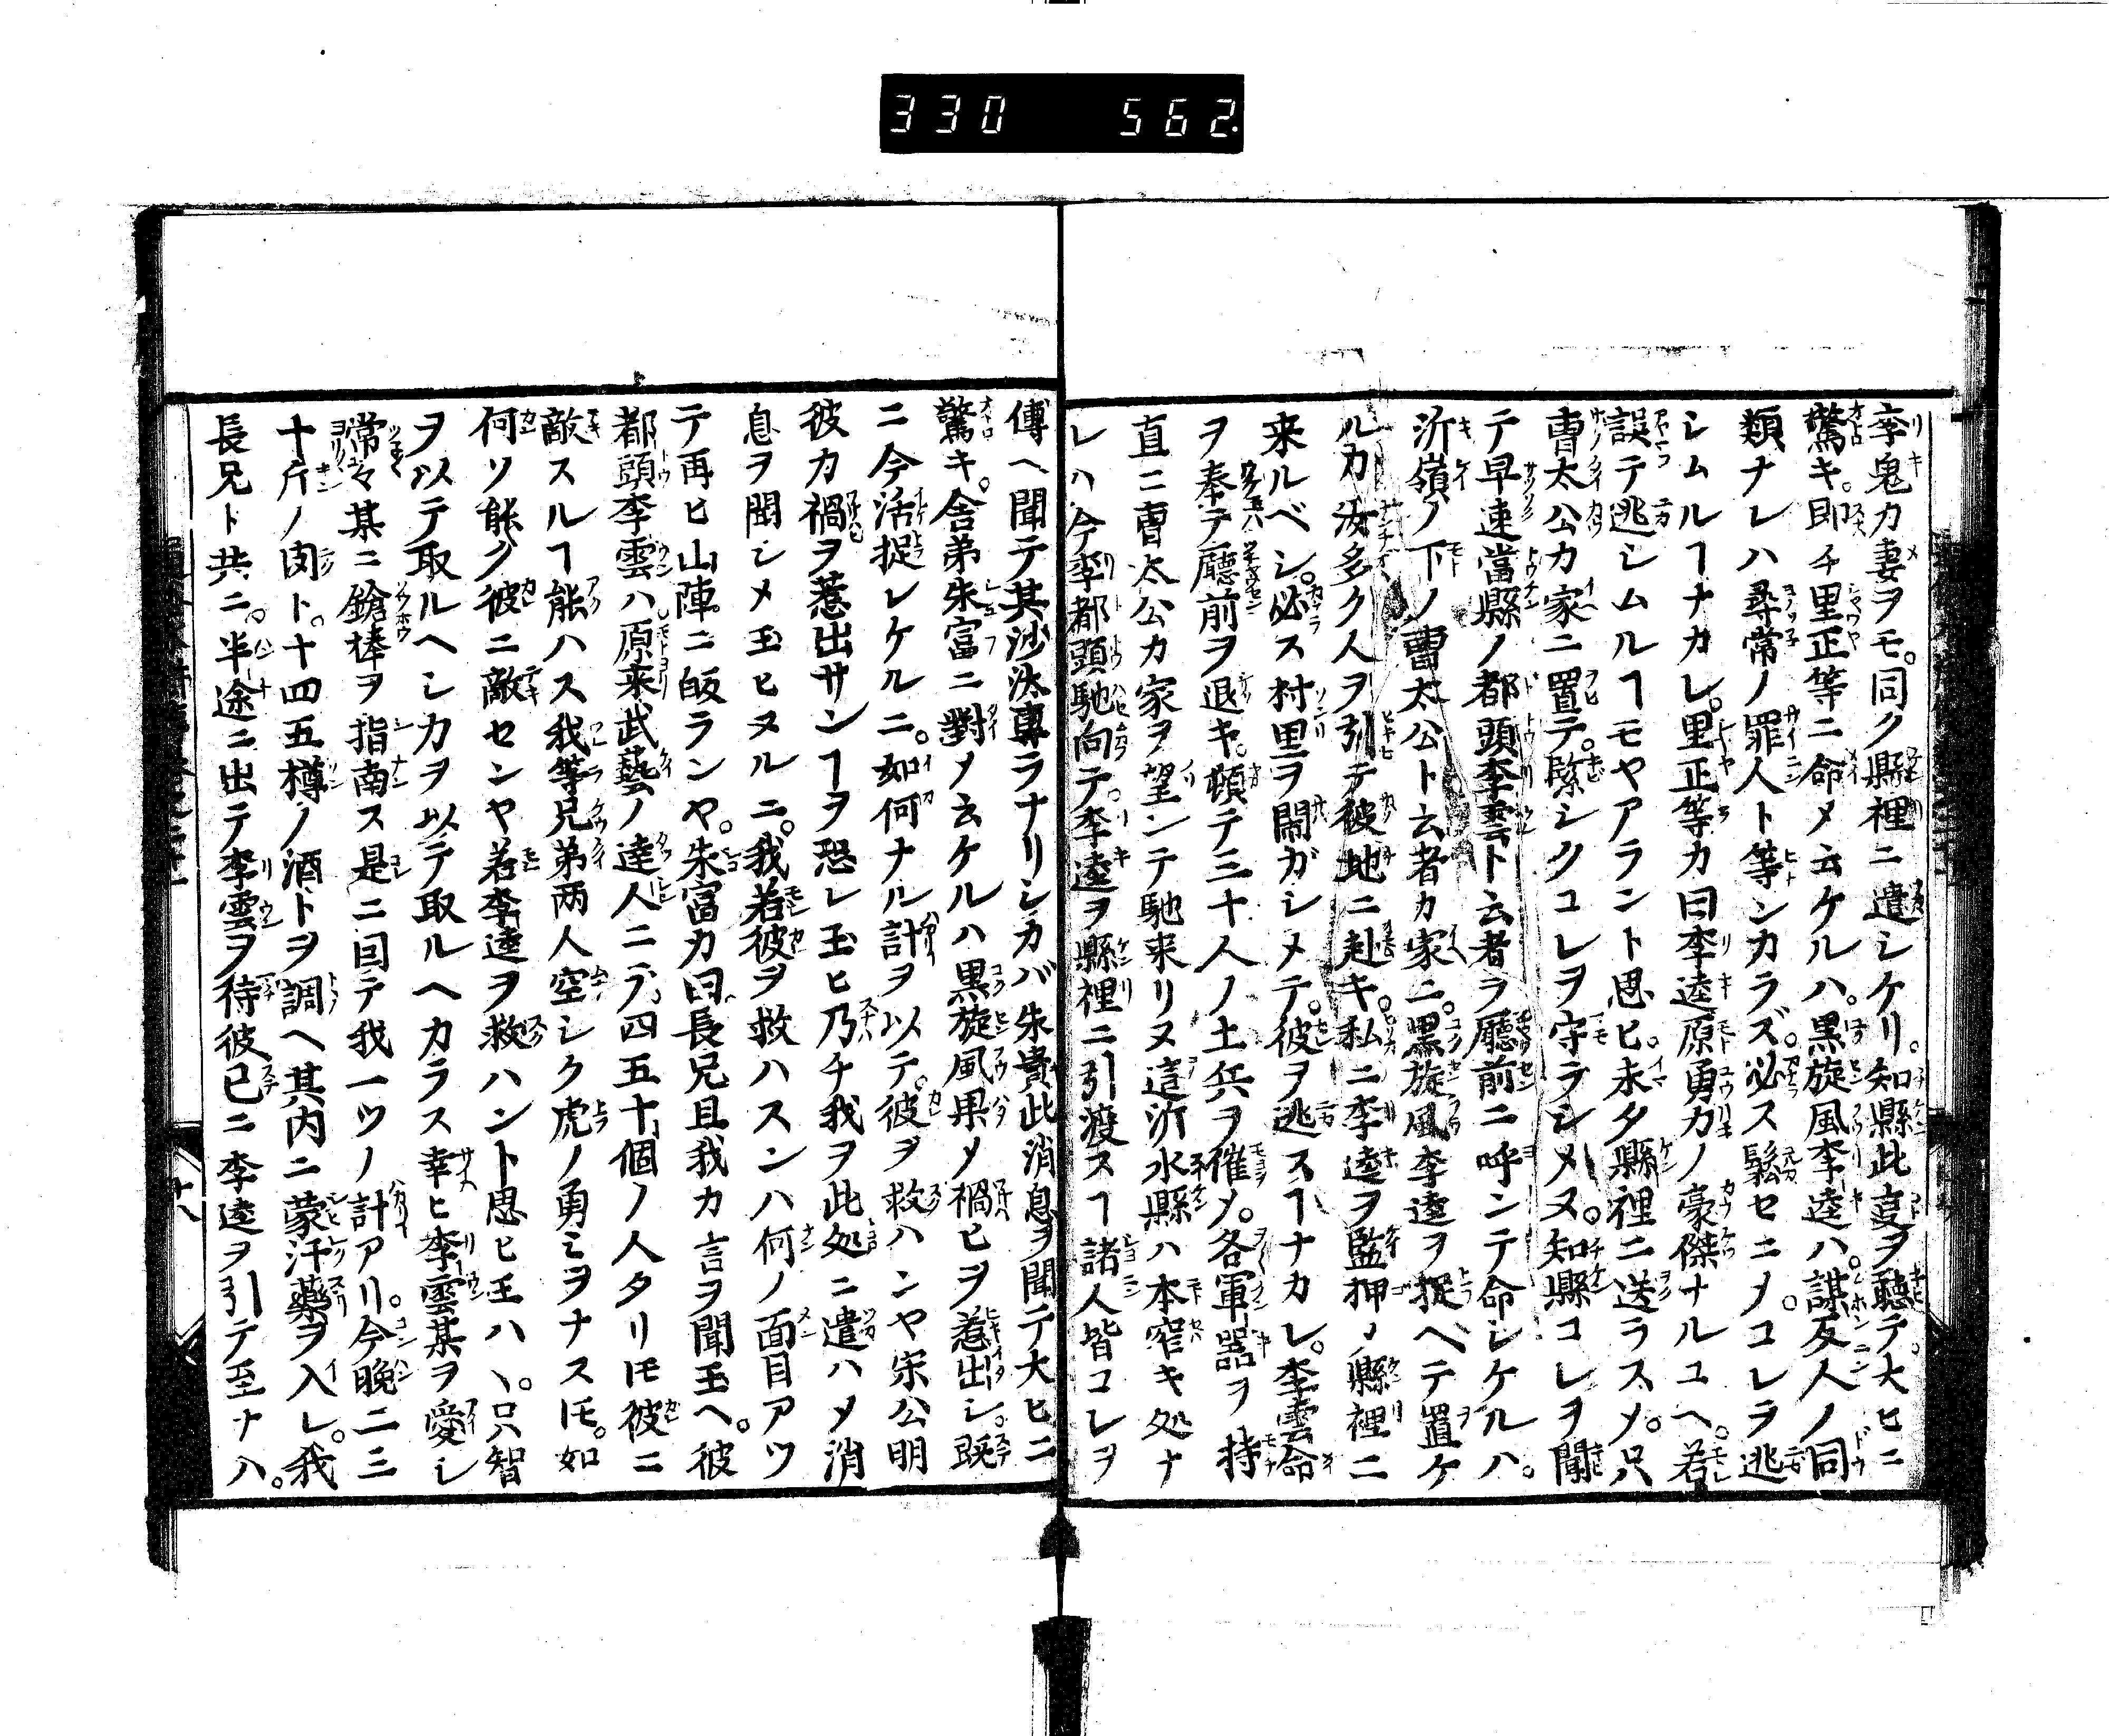 330 562.
李鬼カ妻ヲモ。同ク縣裡ニ遣シケリ。知縣此叓ヲ聽テ。大ヒニ
驚キ。即チ里正等ニ命メ云ケルハ。黒旋風李逵ハ。謀反人ノ同
類ナレハ尋常ノ罪人ト等ンカラズ。必ス鬆セニメ。コレヲ逃
シムルヿナカレ。里正等カ曰李逵原勇力ノ豪傑ナルユヘ。若
誤テ逃シムルヿモヤアラント思ヒ。未タ縣裡ニ送ラスメ。只
曹太公カ家ニ置テ。緊シクコレヲ守ラシメヌ。知縣コレヲ聞
テ早速當縣ノ都頭李雲ト云者ヲ廳前ニ呼ンテ命シケルハ。
沂嶺ノ下ノ曹太公ト云者カ家ニ。黒旋風李逵ヲ捉ヘテ置ケ
ルカ汝多ク人ヲ引テ彼地ニ赴キ。私ニ李逵ヲ監押メ縣裡ニ
来ルベシ。必ス村里ヲ閙ガシメテ。彼ヲ逃スヿナカレ。李雲命
ヲ奉テ廳前ヲ退キ。頓テ三十人ノ土兵ヲ催メ。各軍器ヲ持
直ニ曹太公カ家ヲ望ンテ馳来リヌ這沂水縣ハ本窄キ処ナ
レハ今李都頭馳向テ。李逵ヲ縣裡ニ引渡スヿ諸人皆コレヲ
傳ヘ聞テ其沙汰專ラナリシカバ朱貴此消息ヲ聞テ大ヒニ
驚キ。舎弟朱富ニ對メ云ケルハ黒旋風果メ禍ヒヲ惹出シ。既
ニ今活捉レケルニ。如何ナル計ヲ以テ。彼ヲ救ハンヤ宋公明
彼カ禍ヲ惹出サンヿヲ恐レ玉ヒ乃チ我ヲ此処ニ遣ハメ消
息ヲ聞シメ玉ヒヌルニ。我若彼ヲ救ハスンハ何ノ面目アツ
テ再ヒ山陣ニ皈ランヤ。朱富カ曰。長兄且我カ言ヲ聞玉ヘ。彼
都頭李雲ハ原来武藝ノ達人ニテ。四五十個ノ人タリ𪜈彼ニ
敵スルヿ能ハス我等兄弟两人空シク虎ノ勇ミヲナス𪜈。如
何ソ能ク彼ニ敵センヤ若李逵ヲ救ハント思ヒ玉ハヽ。只智
ヲ以テ取ルヘシ力ヲ以テ取ルヘカラス幸ヒ李雲某ヲ愛シ
常々某ニ鎗棒ヲ指南ス是ニ囙テ我一ツノ計アリ。今晩二三
十斤ノ肉ト。十四五樽ノ酒トヲ調ヘ其内ニ蒙汗藥ヲ入レ。我
長兄ト共ニ。半途ニ出テ李雲ヲ待彼已ニ李逵ヲ引テ至ナハ。
十八